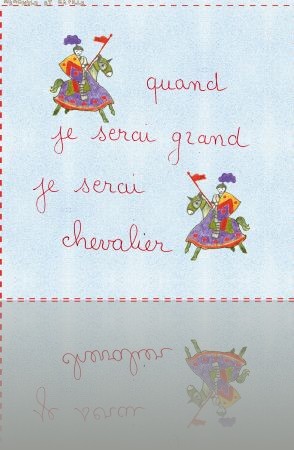 quand
je serai grand
je serai
chevalier